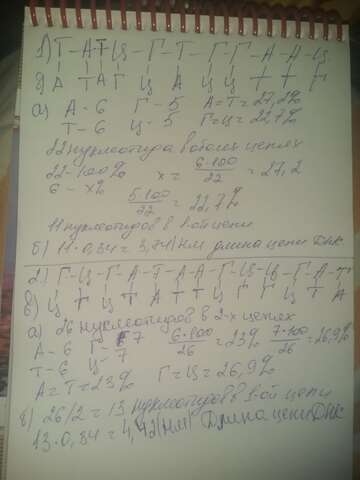 1) Т-А-Т-Ц-Г-Т-Г-Г-А-А-Ц
2) А Т А Г Ц А Ц Ц Т Т Г
а) А-6 Г-5 А=Т=27,2%
Т-6 Ц-5 Г=Ц=22,7%
22 нуклеотида в обоих цепях
22-100% x = 6·100/22 = 27,2
6 - x%
5·100/22 = 22,7%
11 нуклеотидов в 1 ой цепи
б) 11·0,34 = 3,74(нм) длина цепи ДНК
2) Г-Ц-Г-А-Т-А-А-Г-Ц-Ц-Г-А-Т
Ц Г Ц Т А Т Т Ц Г Г Ц Т А
а) 26 нуклеотидов в 2-х цепях
А-6 Г-7 6·100/26 = 23% 7·100/26 = 26,9%
Т-6 Ц-7
А=Т=23% Г=Ц=26,9%
26/2 = 13 нуклеотидов в 1-ой цепи
13·0,34 = 4,42(нм) Длина цепи ДНК